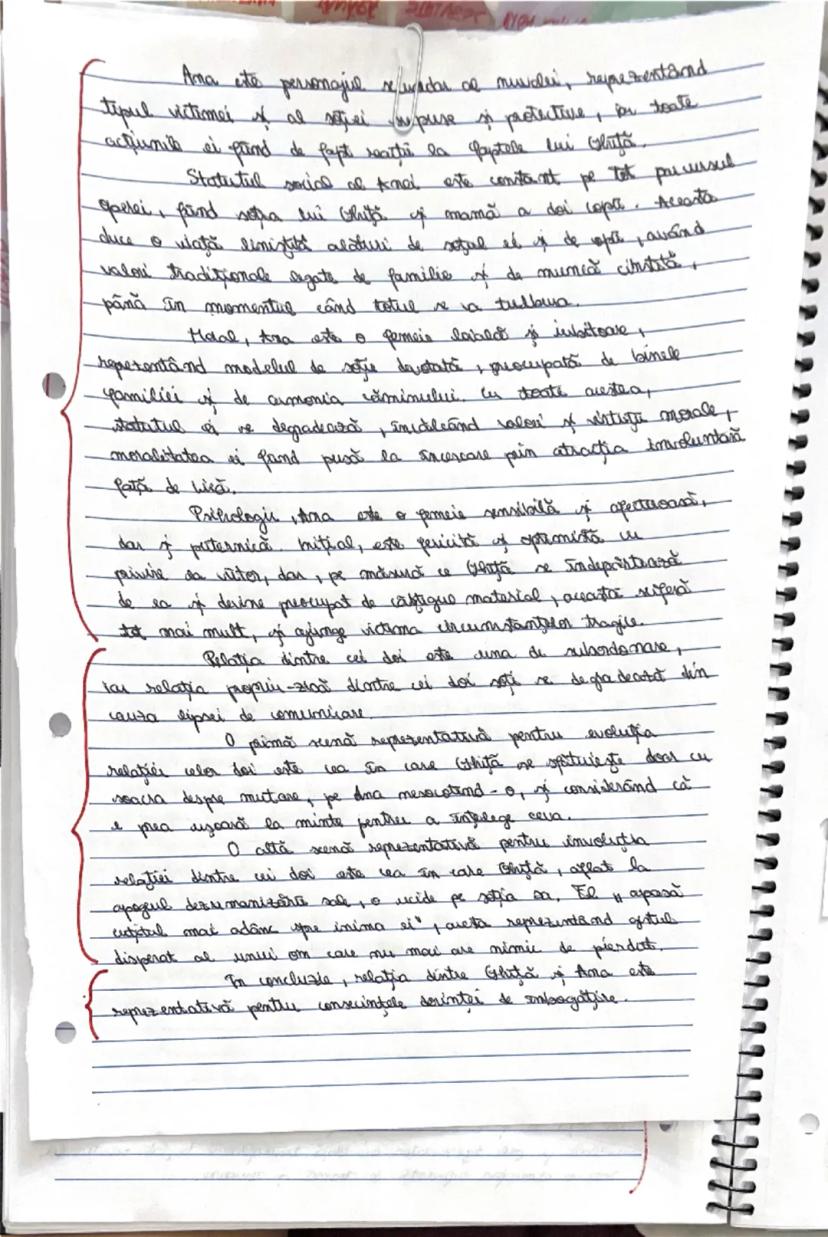 Ana este personajul secundar al nuvelei, reprezentând
tipul victimei și al soției supuse și protective, iar toate
acțiunile ei fiind de fapt reacții la faptele lui Ghiță.
Statutul social al Anei este constant pe tot parcursul
operei, fiind soția lui Ghiță și mamă a doi copii. Aceasta
duce o viață liniștită alături de soțul ei și de copii, având
valori tradiționale legate de familie și de muncă cinstită,
până în momentul când totul se va tulbura.
Moral, Ana este o femeie loială și iubitoare,
reprezentând modelul de soție devotată, preocupată de binele
familiei și de armonia căminului. Cu toate acestea,
statutul ei se degradează, încălcând valori și virtuți morale,
moralitatea ei fiind pusă la încercare prin atracția involuntară
față de Lică.
Psihologic, Ana este o femeie sensibilă și afectuoasă,
dar și puternică. Inițial, este fericită și optimistă cu
privire la viitor, dar, pe măsură ce Ghiță se îndepărtează
de ea și devine preocupat de câștigul material, aceasta suferă
tot mai mult, și ajunge victima circumstanțelor tragice.
Relația dintre cei doi este una de subordonare,
iar relația propriu-zisă dintre cei doi soți se degradează din
cauza lipsei de comunicare.
O primă scenă reprezentativă pentru evoluția
relației celor doi este cea în care Ghiță se sfătuiește doar cu
soacra despre mutare, pe Ana nesocotind-o, și considerând că
e prea ușoară la minte pentru a înțelege ceva.
O altă scenă reprezentativă pentru involuția
relației dintre cei doi este cea în care Ghiță, aflat la
apogeul dezumanizării sale, o ucide pe soția sa. El „apasă
cuțitul mai adânc spre inima ei", acesta reprezentând gestul
disperat al unui om care nu mai are nimic de pierdut.
În concluzie, relația dintre Ghiță și Ana este
reprezentativă pentru consecințele dorinței de îmbogățire.